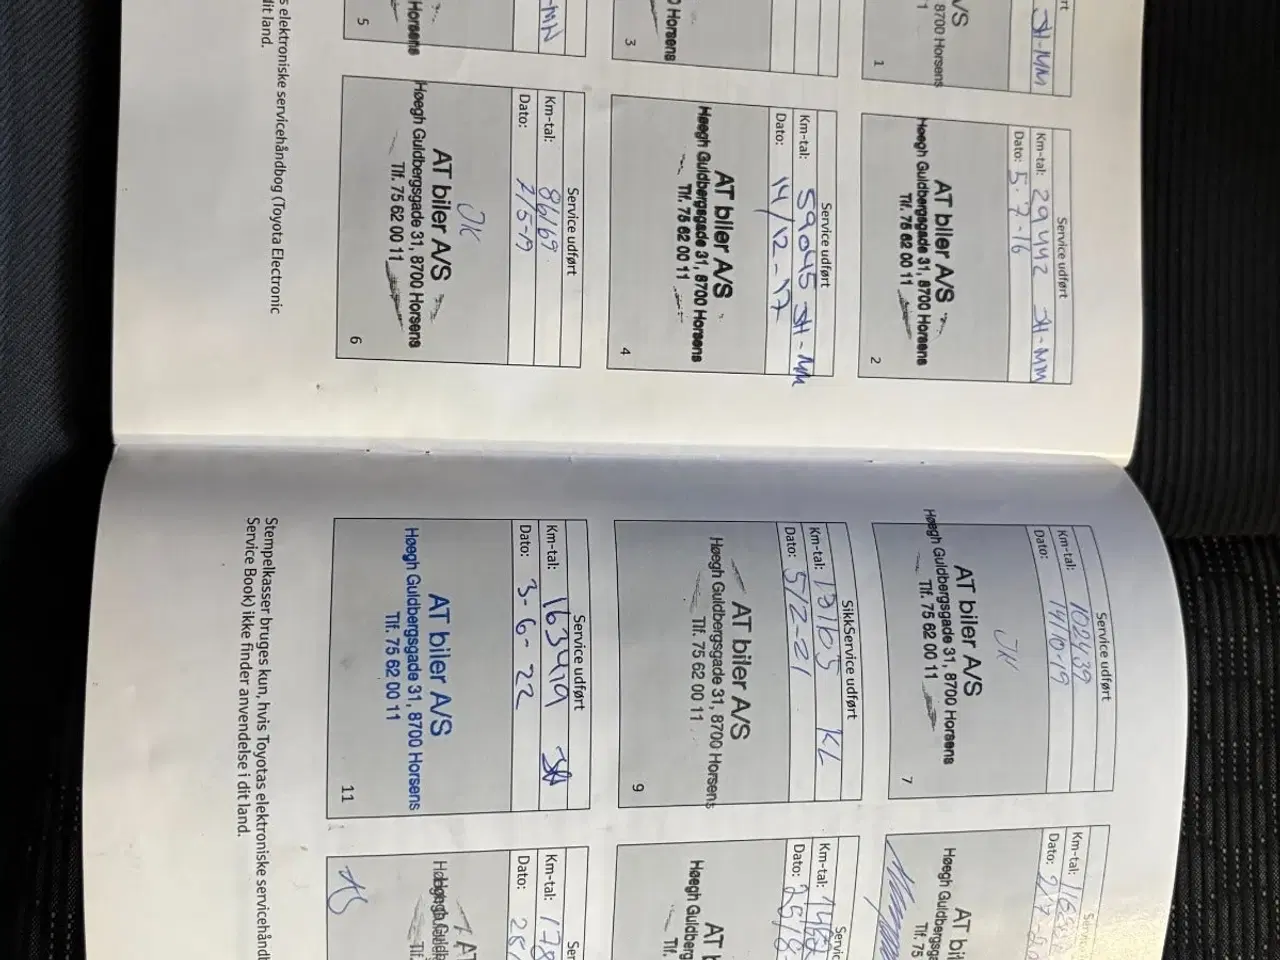 JH-MM
A/S
8700 Horsens
1
Service udført
Km-tal: 29442 JH-MM
Dato: 5-7-16
AT biler A/S
Høegh Guldbergsgade 31, 8700 Horsens
Tlf. 75 62 00 11
2
Horsens
3
Service udført
Km-tal: 59045 JH-MM
Dato: 14/12-17
AT biler A/S
Høegh Guldbergsgade 31, 8700 Horsens
Tlf. 75 62 00 11
4
-MM
Horsens
5
Service udført
Km-tal: 86169
Dato: 2/5-19
JK
AT biler A/S
Høegh Guldbergsgade 31, 8700 Horsens
Tlf. 75 62 00 11
6
s elektroniske servicehåndbog (Toyota Electronic
dit land.
Service udført
Km-tal: 102439
Dato: 14/10-19
JK
AT biler A/S
Høegh Guldbergsgade 31, 8700 Horsens
Tlf. 75 62 00 11
7
Km-tal:
Dato:
AT bil
Høegh Guldbergs
Tlf. 75
SikkService udført
Km-tal: 131165 KL
Dato: 5/2-21
AT biler A/S
Høegh Guldbergsgade 31, 8700 Horsens
Tlf. 75 62 00 11
9
Servic
Km-tal:
Dato:
AT
Høegh Guldberg
Tlf.
Service udført
Km-tal: 163419 JH
Dato: 3-6-22
AT biler A/S
Høegh Guldbergsgade 31, 8700 Horsens
Tlf. 75 62 00 11
11
Ser
Km-tal: 178
Dato: 25
AT
Tlf
Stempelkasser bruges kun, hvis Toyotas elektroniske servicehåndb
Service Book) ikke finder anvendelse i dit land.